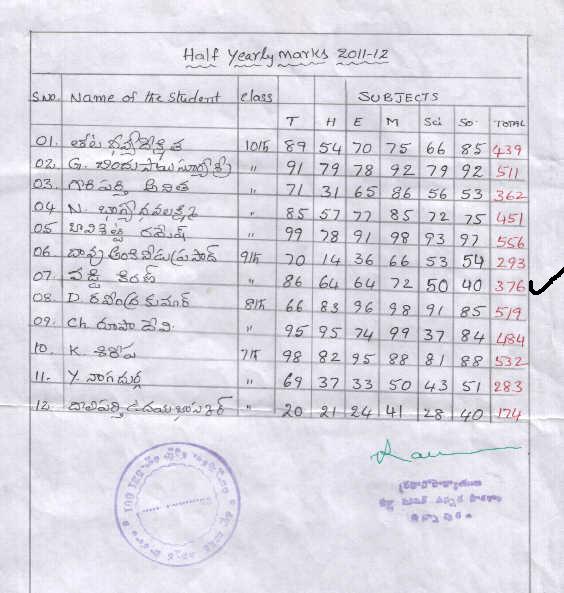 Half Yearly marks 2011-12
S.No. Name of the Student class SUBJECTS
T H E M Sci So. TOTAL
01. 10th 89 54 70 75 66 85 439
02. G. బిందు సాయి " 91 79 78 92 79 92 511
03. గొరపర్తి అనిత " 71 31 65 86 56 53 362
04. N. భాగ్య ధనలక్ష్మి " 85 57 77 85 72 75 451
05. రమేష్ " 99 78 91 98 93 97 556
06. 9th 70 14 36 66 53 54 293
07. వడ్డి కిరణ్ " 86 64 64 72 50 40 376
08. D. రవీంద్ర కుమార్ 8th 66 83 96 98 91 85 519
09. Ch. రూపా దేవి. " 95 95 74 99 37 84 484
10. K. శిరీష 7th 98 82 95 88 81 88 532
11. Y. నాగదుర్గ " 69 37 33 50 43 51 283
12. ఉదయభాస్కర్ " 20 21 24 41 28 40 174